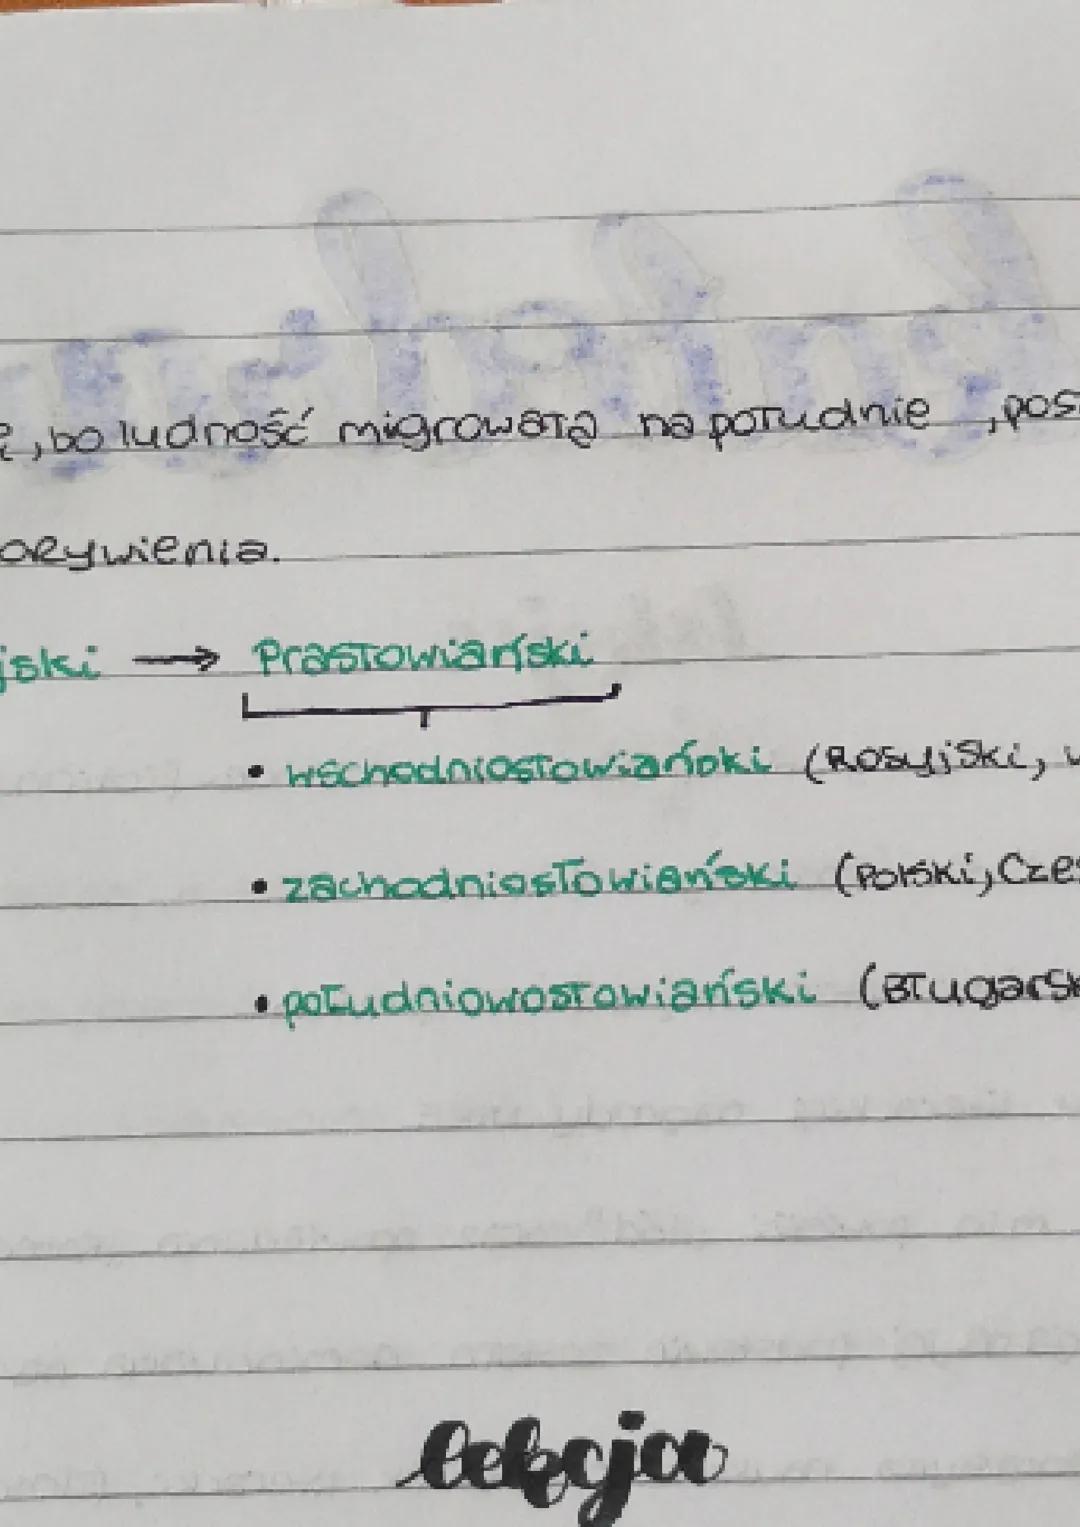 , bo ludność migrowała na południe, pos
orywienia.
jski → Prasłowiański
• wschodniosłowiański (Rosyjski,
• zachodniosłowiański (Polski, Czes
• południowosłowiański (Bługarsk
lekcja